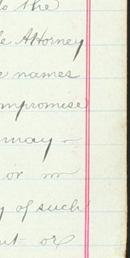 to the
Attorney
names
compromise
may -
or in
of such
or